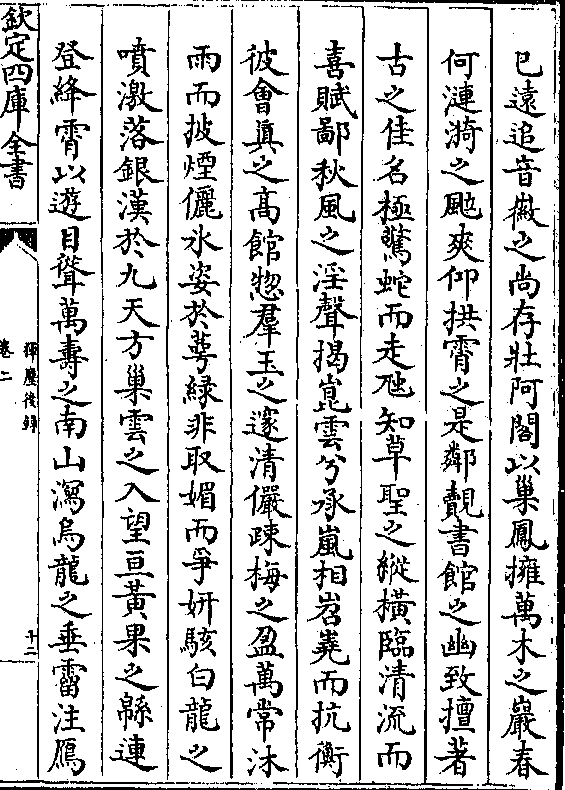 已遠追音徽之尚存壯阿閣以巢鳳擁萬木之巖春
何漣漪之颭爽仰拱霄之是鄰覿書館之幽致擅著
古之佳名極驚蛇而走虺知草聖之縱橫臨清流而
喜賦鄙秋風之淫聲揭崑雲兮承嵐相岧嶤而抗衡
彼會眞之高館惣羣玉之邃清儼疎梅之盈萬常沐
雨而披煙儷氷姿於萼緑非取媚而爭妍駭白龍之
噴激落銀漢於九天方巢雲之入望亘黃果之緜連
登絳霄以遊目聳萬壽之南山瀉烏龍之垂霤注鴈
欽定四庫全書
揮麈後録
卷二
十二